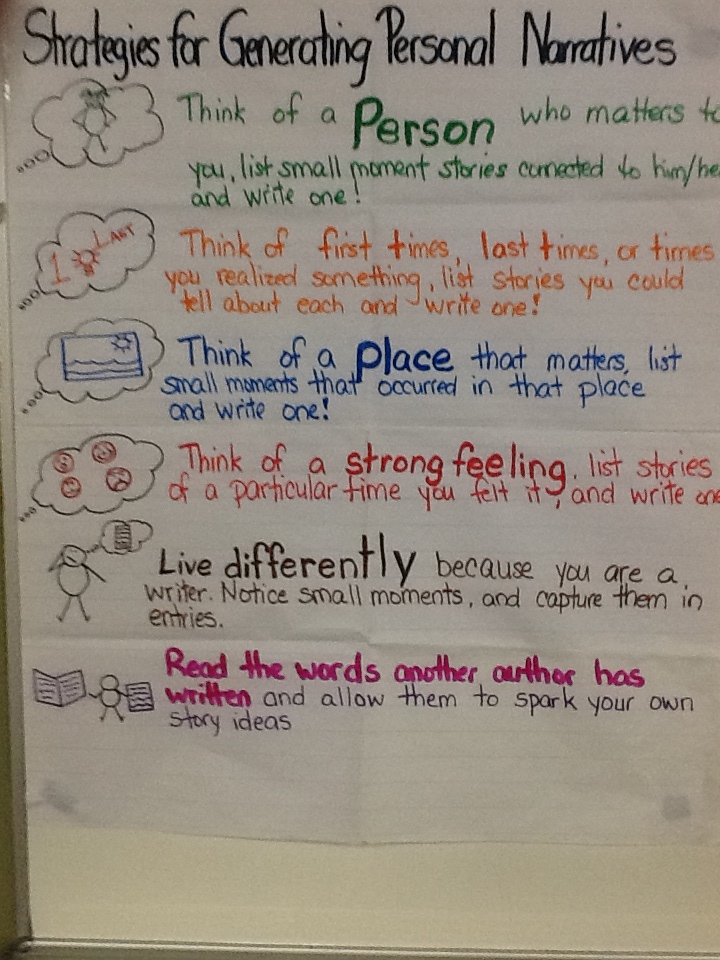 Strategies for Generating Personal Narratives
Think of a Person who matters to
you, list small moment stories connected to him/he
and write one!
1 LAST
Think of first times, last times, or times
you realized something, list stories you could
tell about each and write one!
Think of a place that matters, list
small moments that occurred in that place
and write one!
Think of a strong feeling, list stories
of a particular time you felt it, and write one
Live differently because you are a
writer. Notice small moments, and capture them in
entries.
Read the words another author has
written and allow them to spark your own
story ideas